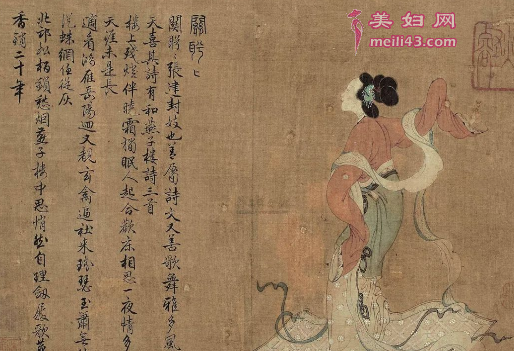 美妇网
meili43.com
關盼〻
關盼〻張建封妓也善屬詩文又善歌舞雅多風
天喜其詩有和燕子樓詩三首
樓上殘燈伴曉霜獨眠人起合歡床相思一夜情多
天涯未是長
適看鴻雁岳陽迴又覩玄禽逼社来瑤瑟玉簫無
蛛網任從灰
北邙松柏鎖愁烟燕子樓中思悄然自理劍履歌
香銷二十年